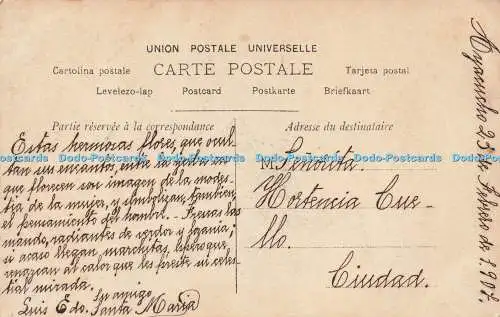 UNION POSTALE UNIVERSELLE
Cartolina postale
CARTE POSTALE
Tarjeta postal
Levelezo-lap
Postcard
Postkarte
Briefkaart
Partie réservée à la correspondance
Adresse du destinataire
Estas hermosas flores, que ocul-
tan sus encantos, entre la
que florecen son imagen de la modes-
tia de la mujer, y simbolizan, tambien,
el pensamiento del hombre. — Frescas las
mando, radiantes de verdor y lozania;
si acaso llegan marchitas, espero que
renazcan al calor que les preste tu celes-
tial mirada.
Su amigo
Luis Edo. Santa Maria
M. Señorita
Hortencia Cue-
llo.
Ciudad.
Ayacucho 25 de Febrero de 1.907.
Dodo-Postcards Dodo-Postcards Dodo-Postcards Dodo-Postcards Dodo-Postcards